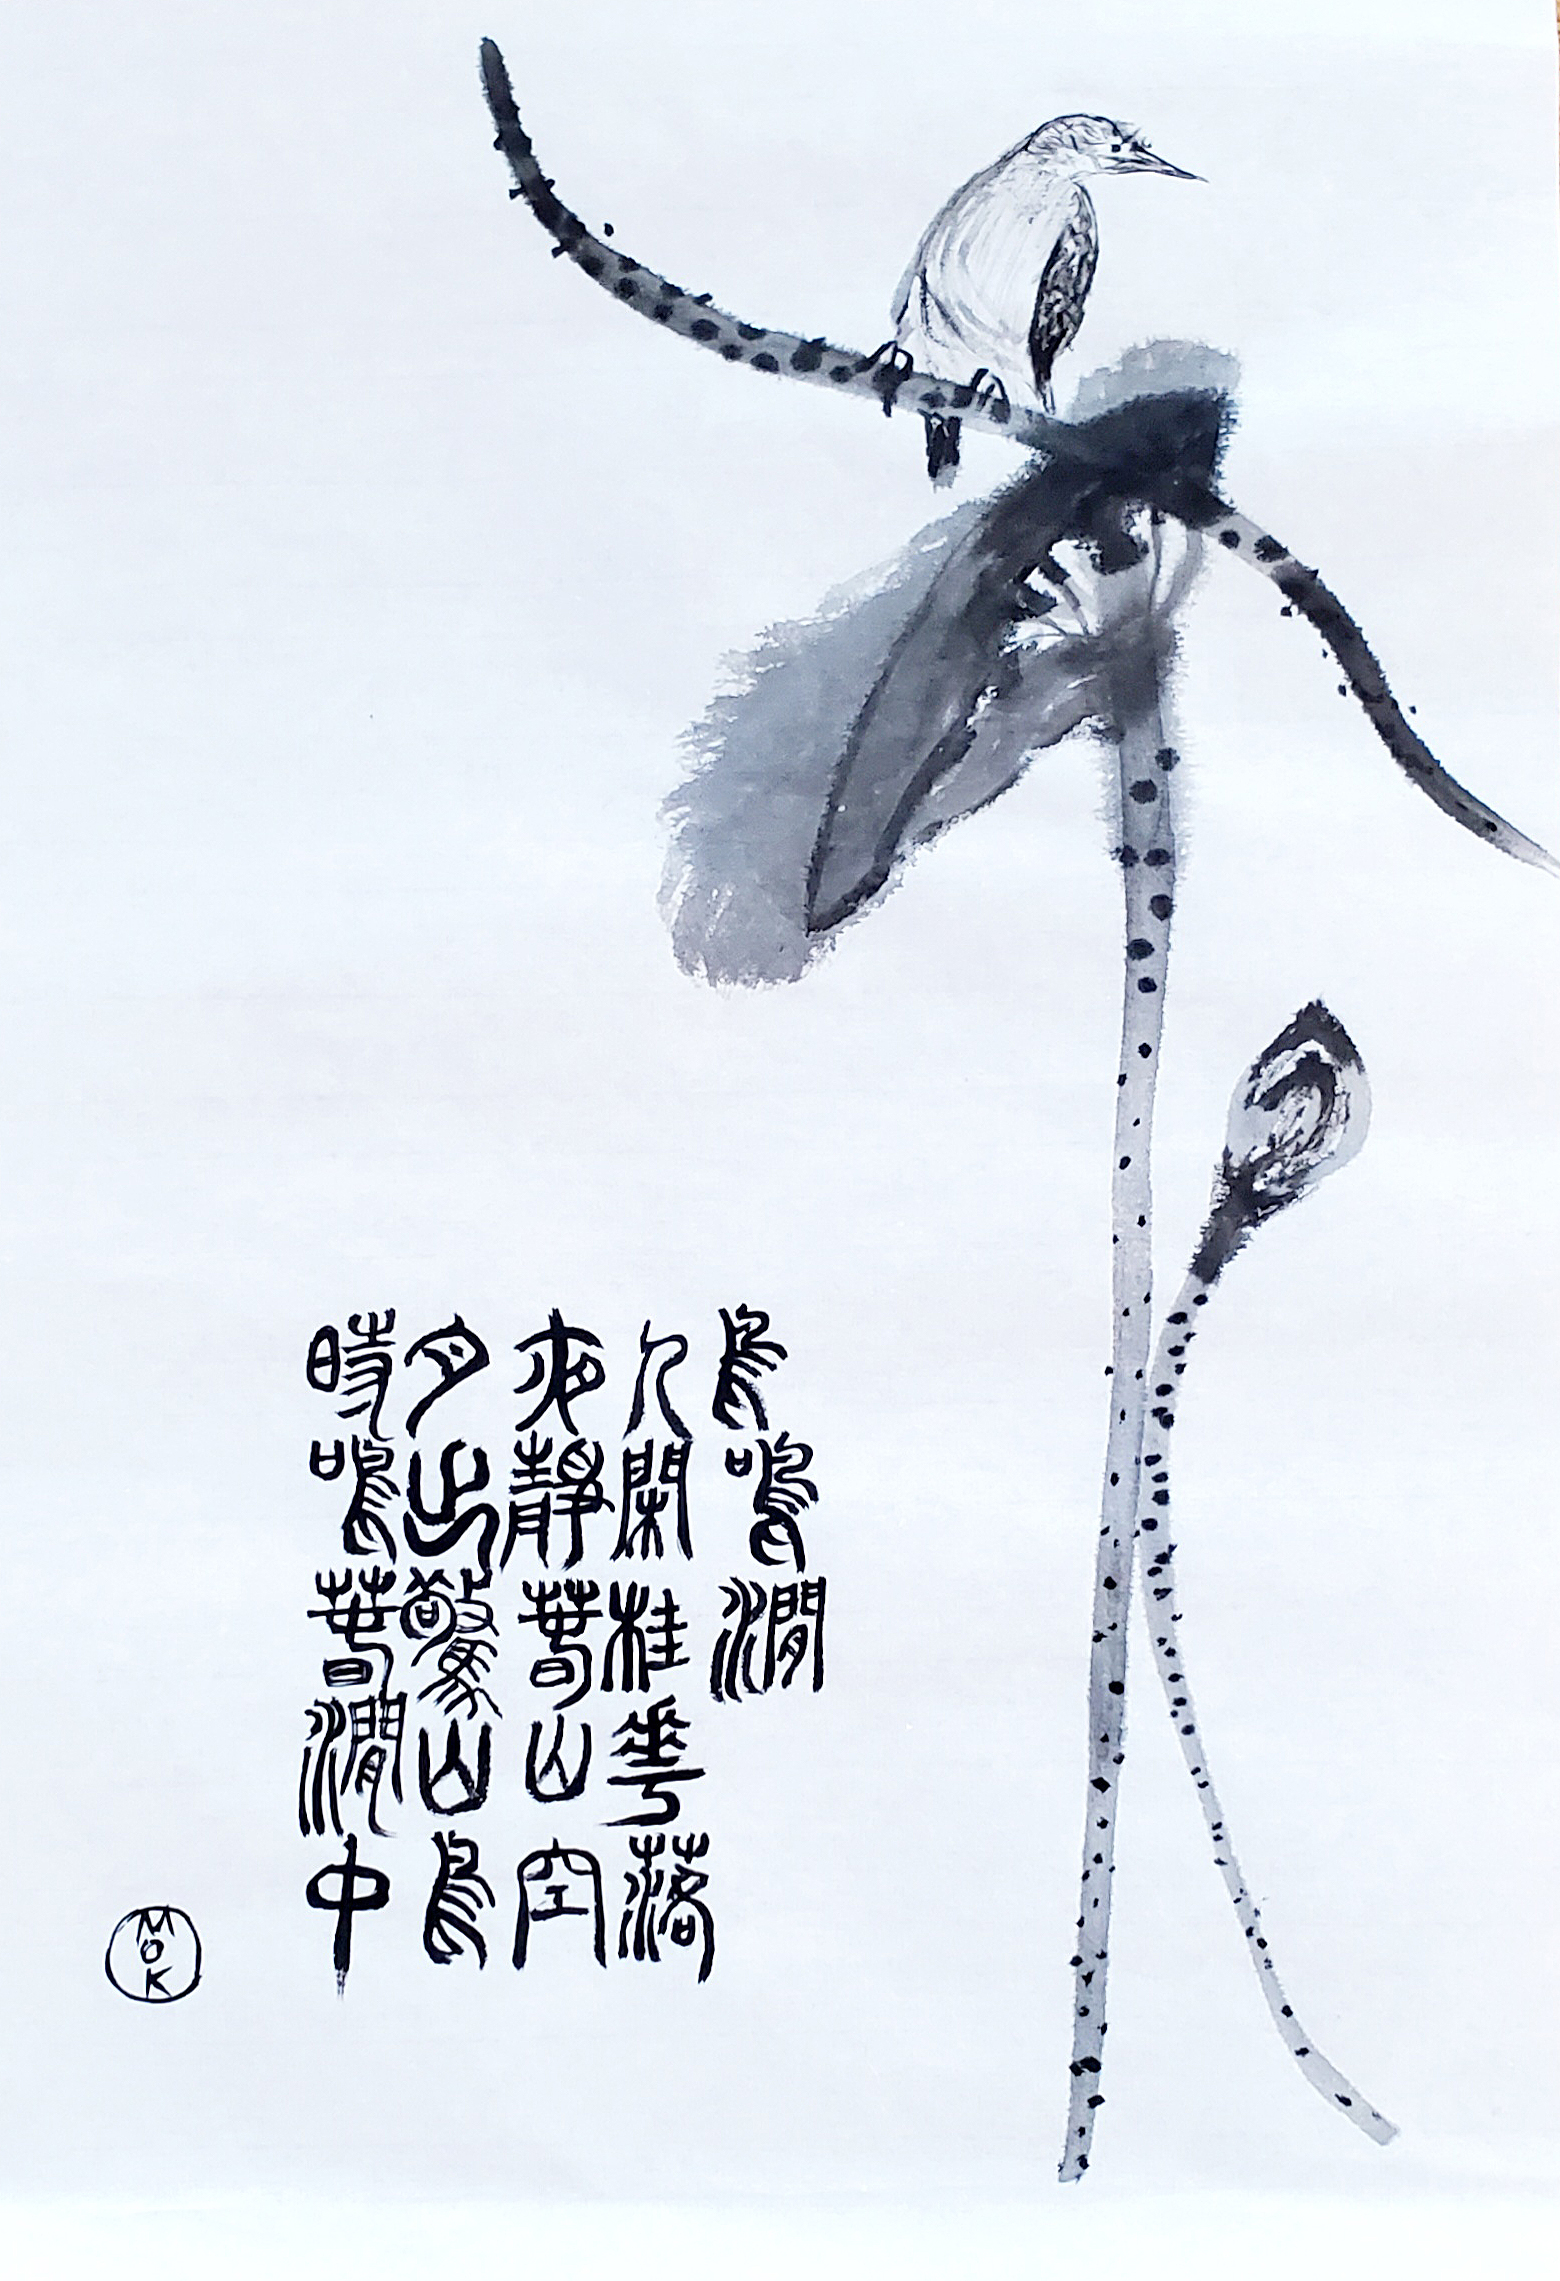 鳥鳴澗
人閑桂華落
夜靜萅山空
月出驚山鳥
時鳴萅澗中
MOK